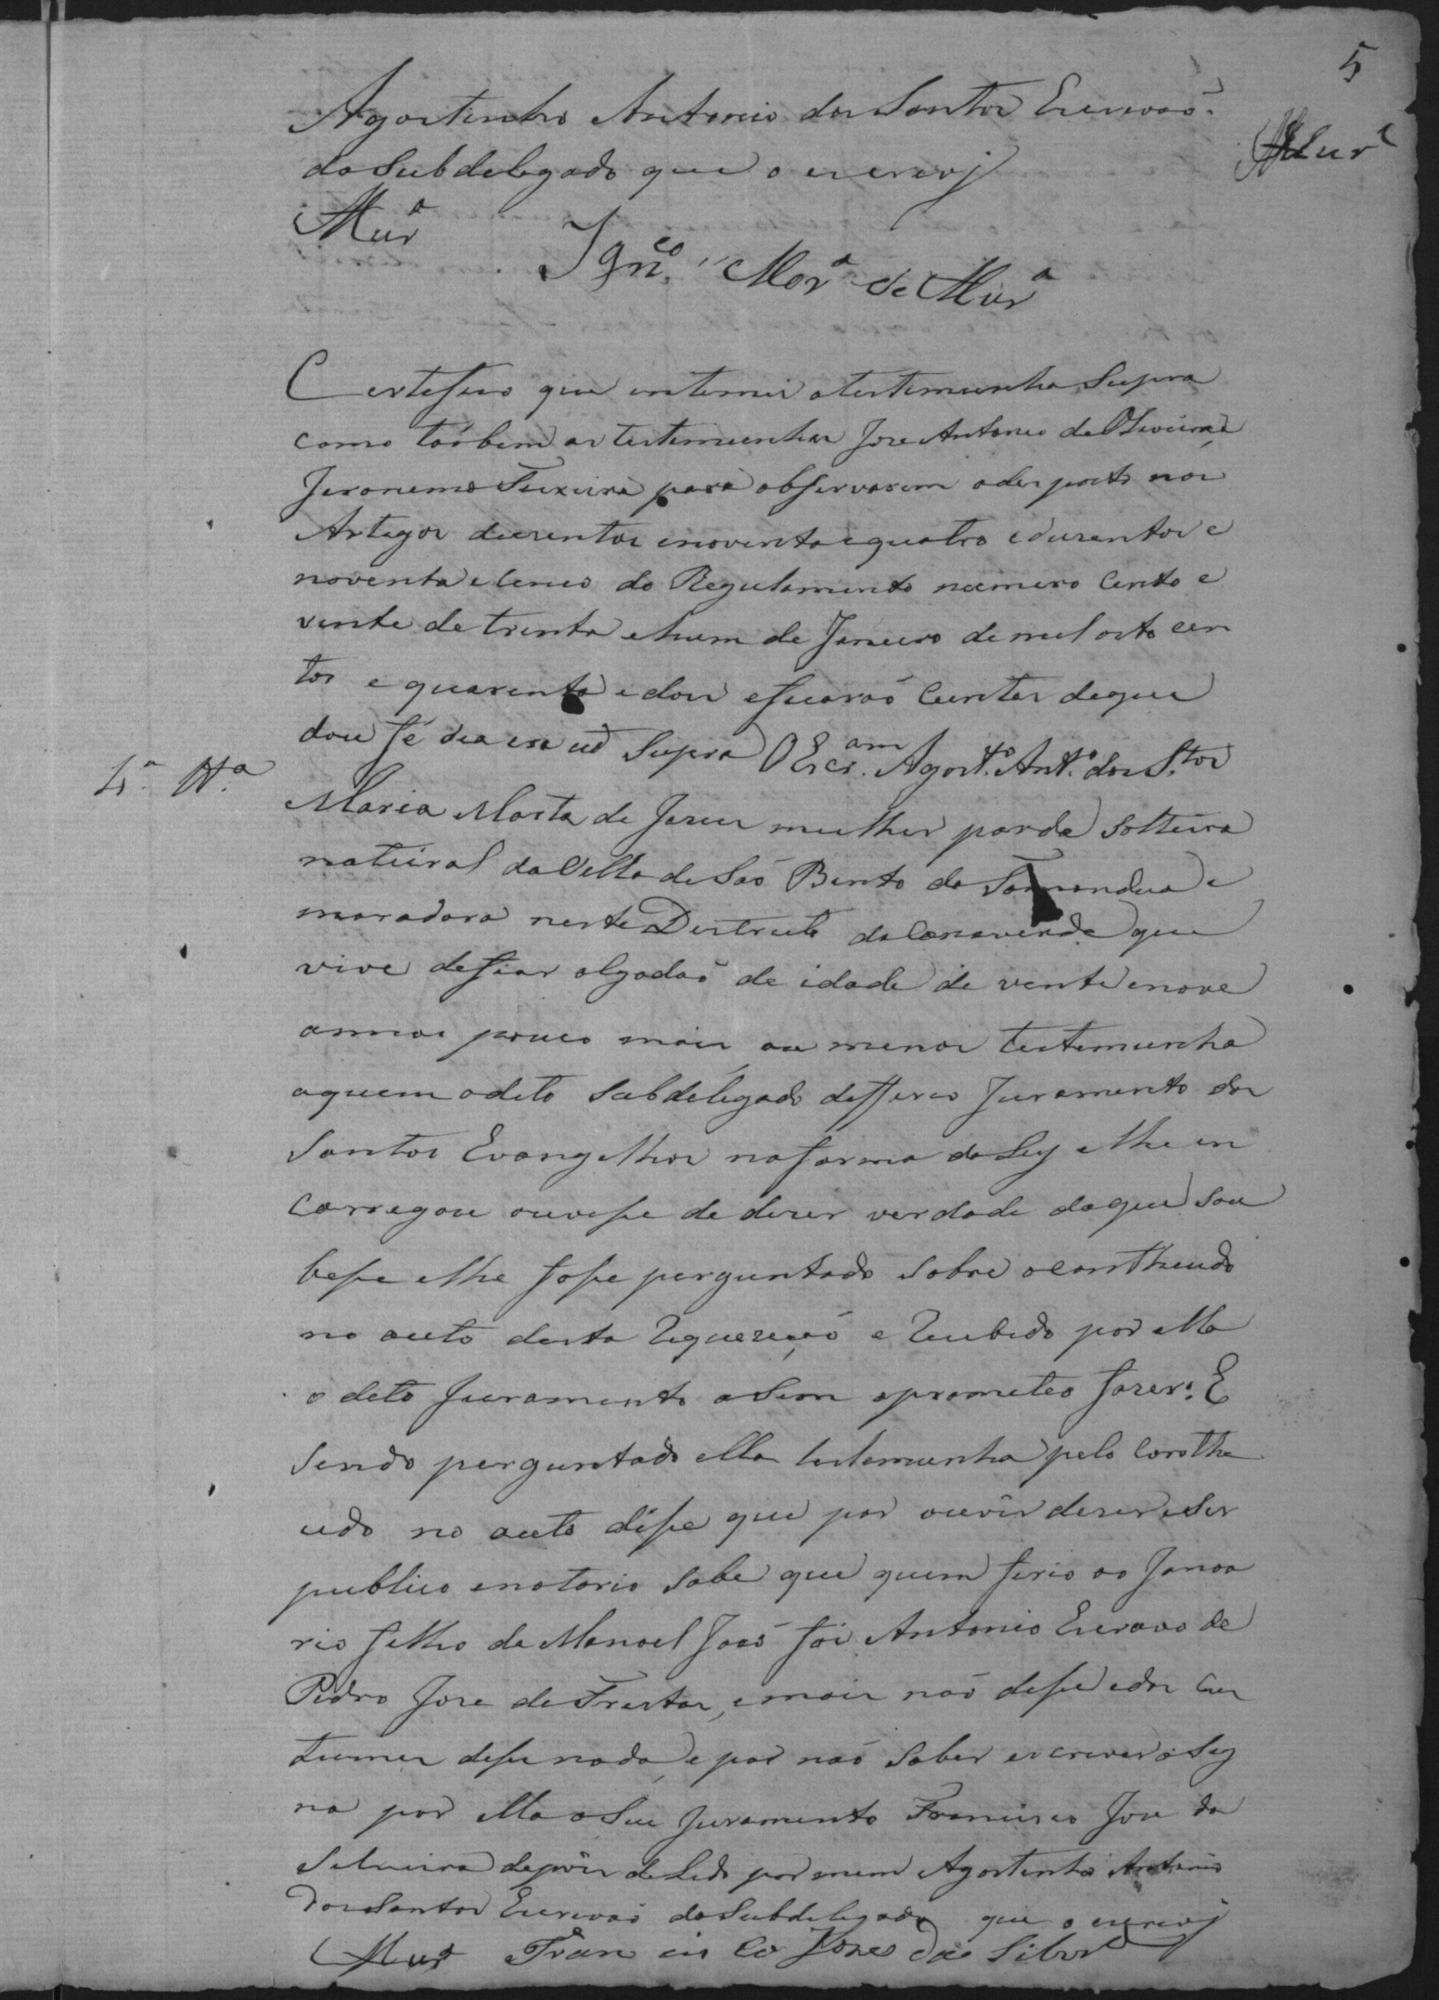 5
Agostinho Antonio dos Santos Escrivaõ
do Subdelegado que o escrevj
Mur.ª
Mur.ª
Ign.co Mor.ª de Mur.ª
Certefico que intemei a testimunha Supra
como taõbem as testimunhas Jose Antonio de Oliveira e
Jeronemo Teixeira para observarem o desposto nos
Artegos duzentos e noventa e quatro e duzentos e
noventa e cinco do Regulamento numero Cento e
vinte de trinta e hum de Janeiro de mil oito cen
tos e quarenta e dois e ficaraõ Cientes de que
dou fé dia era ut Supra O Escr.am Agost.o Ant.o dos S.tos
4.ª Tt.ª
Maria Marta de Jesus mulher parda solteira
natural da Villa de Saõ Bento do Tamandua e
moradora neste Destricto da Cana verde que
vive de fiar algodaõ de idade de vinte e nove
annos pouco mais ou menos testemunha
a quem o dito Subdelegado defferio Juramento dos
Santos Evangelhos na forma da Ley e lhe en
carregou ouvesse de dizer verdade do que sou
besse e lhe fosse perguntado sobre o conthiudo
no auto desta e recebido por ella
o dito Juramento asim o prometeo fazer. E
Sendo perguntado ella testemunha pelo Conthe
udo no auto disse que por ouvir dizer e ser
publico e notorio sabe que quem ferio ao Janoa
rio filho de Manoel Joaõ foi Antonio Escravo de
Pedro Jose de Freitas, e mais naõ disse e dos Cus
tumes disse nada, e por naõ saber escrever asig
na por ella o seu Juramento Francisco Jose da
Silveira depois de lido por mim Agostinho Antonio
dos Santos Escrivaõ do Subdelegado que o escrevj
Mur.ª Fran cis co Joze da Silvr.ª